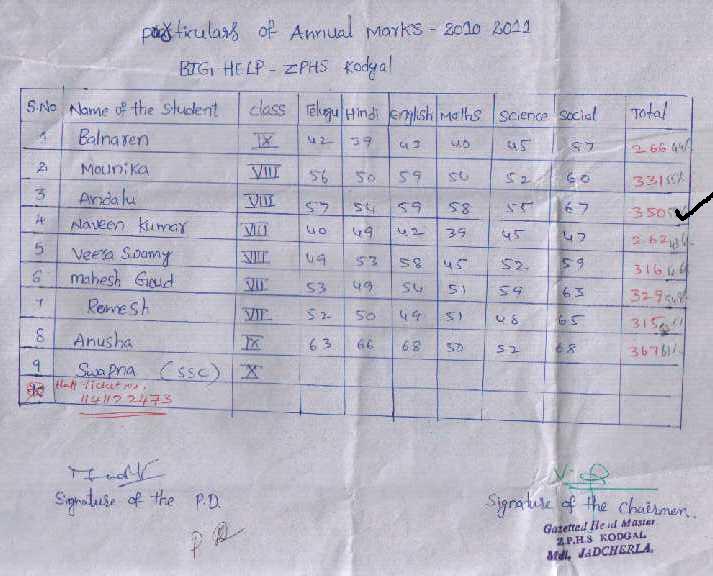 particulars of Annual Marks - 2010 2011
BIG HELP - ZPHS Kodgal
S.No Name of the Student class Telugu Hindi English Maths Science Social Total
1 Balnaren IX 42 39 43 40 45 57 266
2 Mounika VIII 56 50 59 54 52 60 331
3 Andalu VIII 57 54 59 58 55 67 350
4 Naveen Kumar VIII 40 49 42 39 45 47 262
5 Veera Swamy VIII 49 53 58 45 52 59 316
6 Mahesh Goud VII 53 49 54 51 59 63 329
7 Ramesh VII 52 50 49 51 48 65 315
8 Anusha IX 63 66 68 50 52 68 367 61%
9 Swapna (SSC) X
Hall Ticket no.
1141122473
Signature of the P.D.
P D
Signature of the Chairmen.
Gazetted Head Master
Z.P.H.S KODGAL
Mdl, JADCHERLA.